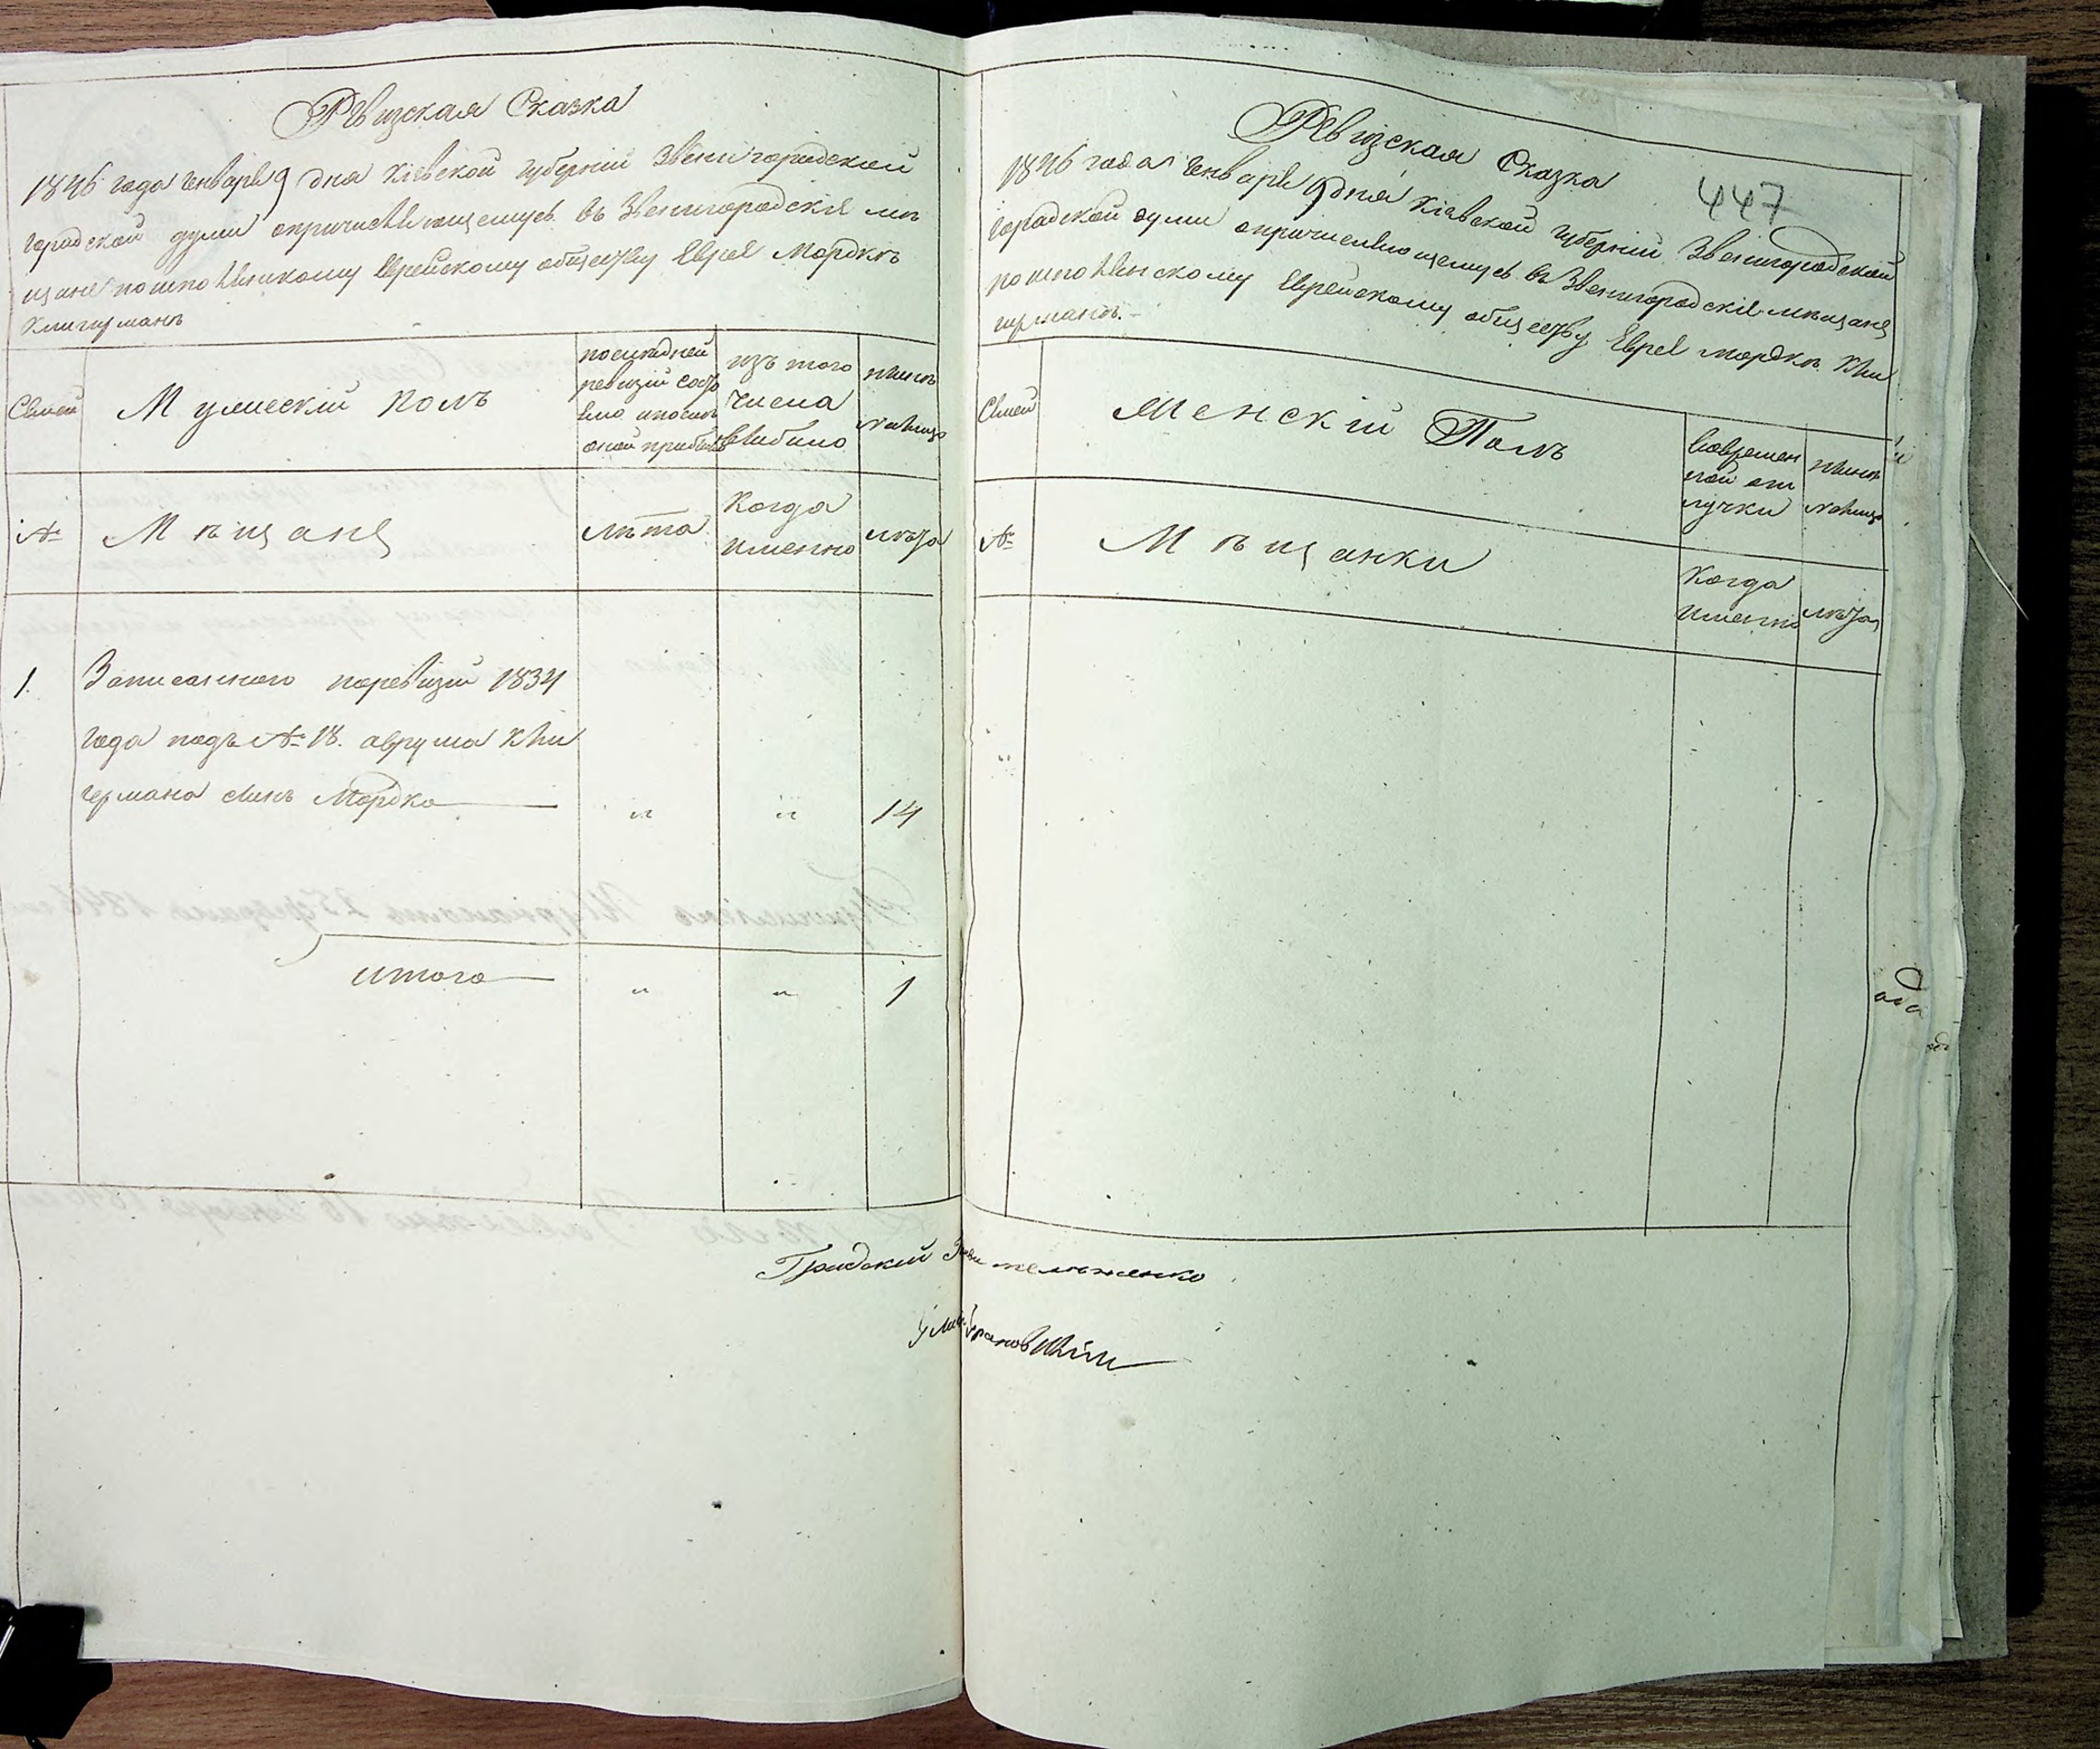 Ревизская Сказка
1846 года Генваря 9 дня Кіевской губерніи Звенигородской
городской думи опричисляющемусь въ Звенигородскіе мѣ
щане по шполянскому Еврейскому обществу Еврее Мордкѣ
Клигерманѣ
Семей
Мужескій полъ
последней
ревизіи состо
яло и после
оной прибыло
изъ того
числа
выбыло
нынѣ
налицо
№
Мѣщане
лѣта
Когда
именно
лѣта
1.
Записанного по ревизіи 1834
года подъ № 18. Аврума Кли
германа сынъ Мордко
"
"
14
итого
"
"
1
447
Ревизская Сказка
1846 года Генваря 9 дня Кіевской губерніи Звенигородской
городской думи опричисляющемусь въ Звенигородскіе мѣщане
по шполянскому Еврейскому обществу Еврее Мордкѣ Кли
германѣ.
Семей
Женскій Полъ
во времен
ной от
лучки
нынѣ
налицо
№
Мѣщанки
Когда
именно
лѣта
"
Градскій